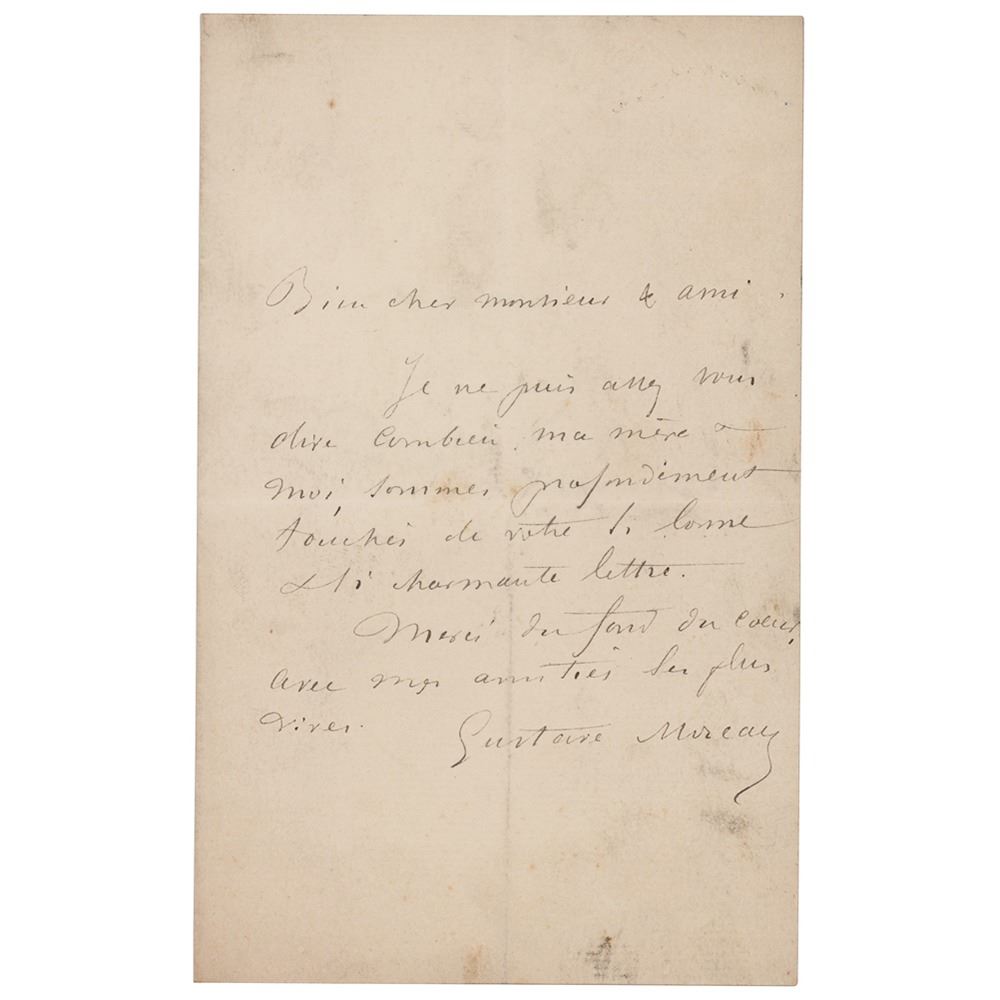 Bien cher monsieur & ami.
Je ne puis assez vous
dire combien ma mère &
moi, sommes profondément
touchés de votre si bonne
& si charmante lettre.
Merci du fond du cœur,
avec mes amitiés les plus
vives.
Gustave Moreau